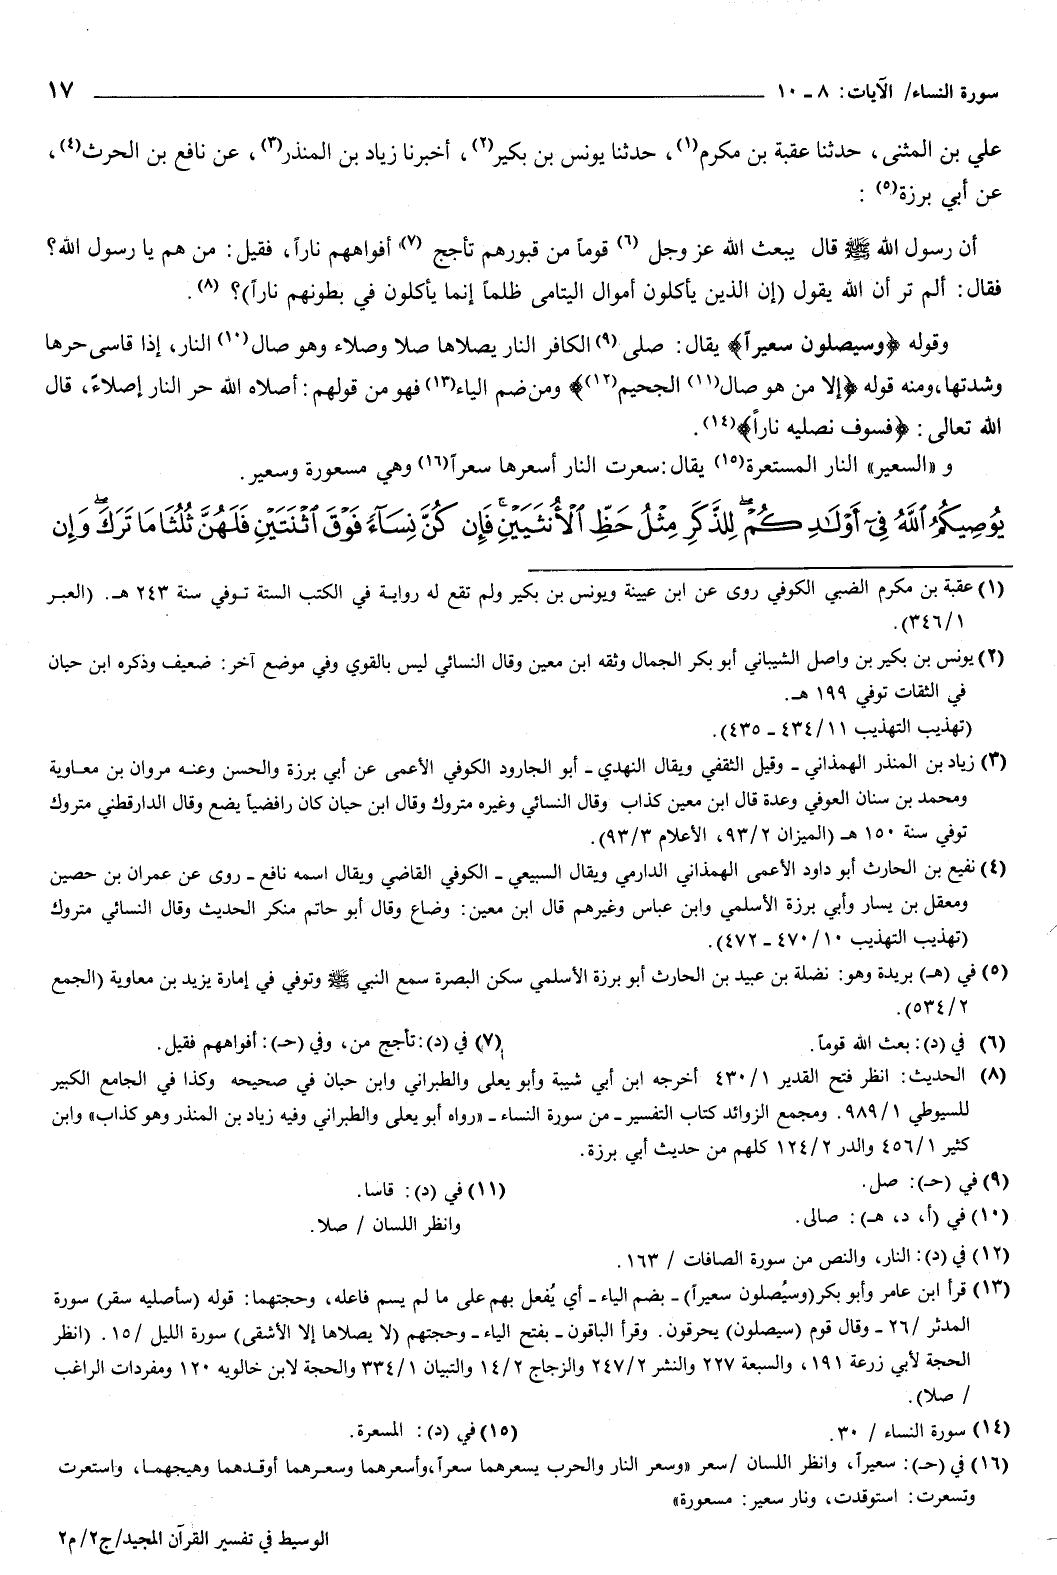 سورة النساء/ الآيات: ٨ ـ ١٠ ١٧
علي بن المثنى، حدثنا عقبة بن مكرم(١)، حدثنا يونس بن بكير(٢)، أخبرنا زياد بن المنذر(٣)، عن نافع بن الحرث(٤)،
عن أبي برزة(٥) :
أن رسول الله ﷺ قال يبعث الله عز وجل (٦) قوماً من قبورهم تأجج (٧) أفواههم ناراً، فقيل: من هم يا رسول الله؟
فقال: ألم تر أن الله يقول (إن الذين يأكلون أموال اليتامى ظلماً إنما يأكلون في بطونهم ناراً)؟ (٨).
وقوله ﴿وسيصلون سعيراً﴾ يقال: صلى (٩) الكافر النار يصلاها صلا وصلاء وهو صال(١٠) النار، إذا قاسى حرها
وشدتها،ومنه قوله ﴿إلا من هو صال(١١) الجحيم(١٢)﴾ ومن ضم الياء(١٣) فهو من قولهم: أصلاه الله حر النار إصلاءً، قال
الله تعالى: ﴿فسوف نصليه ناراً﴾(١٤).
و «السعير» النار المستعرة(١٥) يقال:سعرت النار أسعرها سعراً(١٦) وهي مسعورة وسعير.
يُوصِيكُمُ ٱللَّهُ فِىٓ أَوْلَٰدِكُمْ ۖ لِلذَّكَرِ مِثْلُ حَظِّ ٱلْأُنثَيَيْنِ ۚ فَإِن كُنَّ نِسَآءً فَوْقَ ٱثْنَتَيْنِ فَلَهُنَّ ثُلُثَا مَا تَرَكَ ۖ وَإِن
(١) عقبة بن مكرم الضبي الكوفي روى عن ابن عيينة ويونس بن بكير ولم تقع له رواية في الكتب الستة توفي سنة ٢٤٣ هـ. (العبر
٣٤٦/١).
(٢) يونس بن بكير بن واصل الشيباني أبو بكر الجمال وثقه ابن معين وقال النسائي ليس بالقوي وفي موضع آخر: ضعيف وذكره ابن حيان
في الثقات توفي ١٩٩ هـ.
(تهذيب التهذيب ٤٣٤/١١ ـ ٤٣٥).
(٣) زياد بن المنذر الهمذاني ـ وقيل الثقفي ويقال النهدي ـ أبو الجارود الكوفي الأعمى عن أبي برزة والحسن وعنه مروان بن معاوية
ومحمد بن سنان العوفي وعدة قال ابن معين كذاب وقال النسائي وغيره متروك وقال ابن حيان كان رافضياً يضع وقال الدارقطني متروك
توفي سنة ١٥٠ هـ (الميزان ٩٣/٢، الأعلام ٩٣/٣).
(٤) نفيع بن الحارث أبو داود الأعمى الهمذاني الدارمي ويقال السبيعي ـ الكوفي القاضي ويقال اسمه نافع ـ روى عن عمران بن حصين
ومعقل بن يسار وأبي برزة الأسلمي وابن عباس وغيرهم قال ابن معين: وضاع وقال أبو حاتم منكر الحديث وقال النسائي متروك
(تهذيب التهذيب ٤٧٠/١٠ ـ ٤٧٢).
(٥) في (هـ) بريدة وهو: نضلة بن عبيد بن الحارث أبو برزة الأسلمي سكن البصرة سمع النبي ﷺ وتوفي في إمارة يزيد بن معاوية (الجمع
٥٣٤/٢).
(٦) في (د): بعث الله قوماً. (٧) في (د): تأجج من، وفي (حـ): أفواههم فقيل.
(٨) الحديث: انظر فتح القدير ٤٣٠/١ أخرجه ابن أبي شيبة وأبو يعلى والطبراني وابن حيان في صحيحه وكذا في الجامع الكبير
للسيوطي ٩٨٩/١. ومجمع الزوائد كتاب التفسير ـ من سورة النساء ـ «رواه أبو يعلى والطبراني وفيه زياد بن المنذر وهو كذاب» وابن
كثير ٤٥٦/١ والدر ١٢٤/٢ كلهم من حديث أبي برزة.
(٩) في (حـ): صل. (١١) في (د): قاسا.
(١٠) في (أ، د، هـ): صالى. وانظر اللسان / صلا.
(١٢) في (د): النار، والنص من سورة الصافات / ١٦٣.
(١٣) قرأ ابن عامر وأبو بكر(وسيُصلون سعيراً) ـ بضم الياء ـ أي يُفعل بهم على ما لم يسم فاعله، وحجتهما: قوله (سأصليه سقر) سورة
المدثر /٢٦ ـ وقال قوم (سيصلون) يحرقون. وقرأ الباقون ـ بفتح الياء ـ وحجتهم (لا يصلاها إلا الأشقى) سورة الليل /١٥. (انظر
الحجة لأبي زرعة ١٩١، والسبعة ٢٢٧ والنشر ٢٤٧/٢ والزجاج ١٤/٢ والتبيان ٣٣٤/١ والحجة لابن خالويه ١٢٠ ومفردات الراغب
/ صلا).
(١٤) سورة النساء / ٣٠. (١٥) في (د): المسعرة.
(١٦) في (حـ): سعيراً، وانظر اللسان /سعر «وسعر النار والحرب يسعرهما سعراً،وأسعرهما وسعرهما أوقدهما وهيجهما، واستعرت
وتسعرت: استوقدت، ونار سعير: مسعورة»
الوسيط في تفسير القرآن المجيد/ج٢/م٢